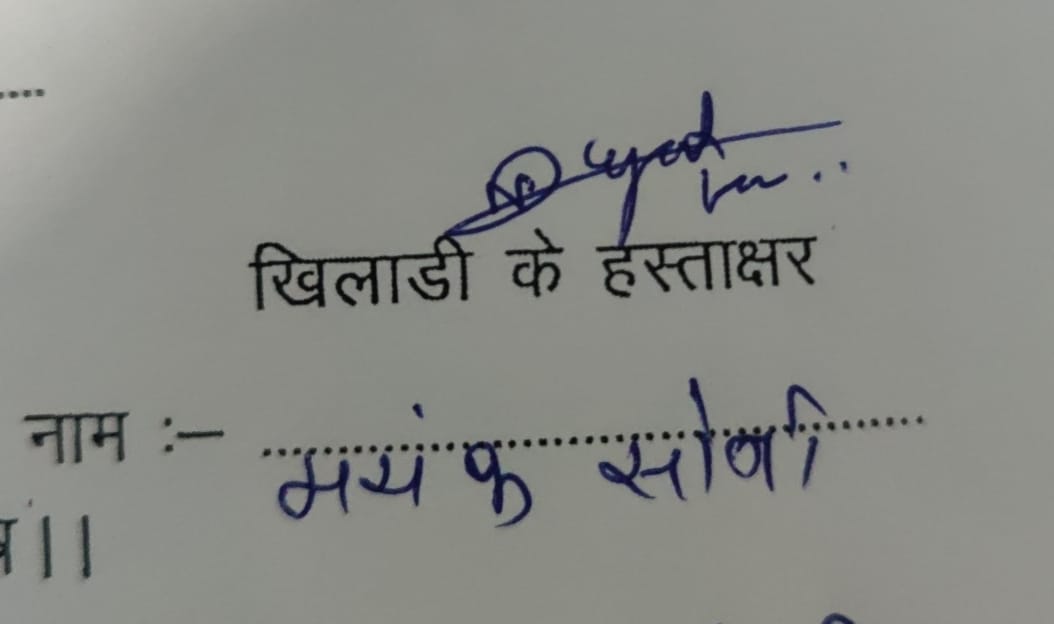 खिलाडी के हस्ताक्षर
नाम :–
मयंक सोनी
।।